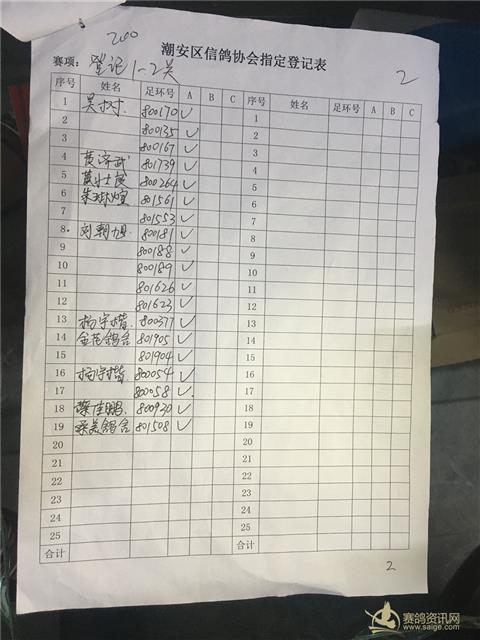 200
潮安区信鸽协会指定登记表
赛项：登记1-2关 2
序号 姓名 足环号 A B C 序号 姓名 足环号 A B C
1 吴树 800170 ✓ 1
2 800135 ✓ 2
3 800167 ✓ 3
4 黄济武 801739 ✓ 4
5 黄壮茂 800264 ✓ 5
6 801561 ✓ 6
7 801553 ✓ 7
8 刘朝旭 800181 ✓ 8
9 800188 ✓ 9
10 800189 ✓ 10
11 801626 ✓ 11
12 801623 ✓ 12
13 杨宇楷 800377 ✓ 13
14 金苑鸽舍 801905 ✓ 14
15 801904 ✓ 15
16 杨宇楷 800054 ✓ 16
17 800058 ✓ 17
18 蔡佳鹏 800930 ✓ 18
19 鸽舍 801508 ✓ 19
20 20
21 21
22 22
23 23
24 24
25 25
合计 合计
2
赛鸽资讯网
www.saige.com